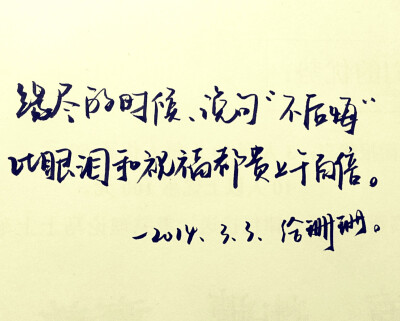 缘尽的时候、说句“不后悔”
比眼泪和祝福都贵上千百倍。
—2014.3.3.给珊珊。